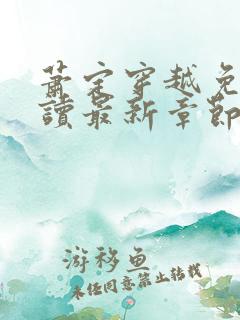 蕭宋穿越免
讀最新章節
游移鱼
未经同意禁止转载